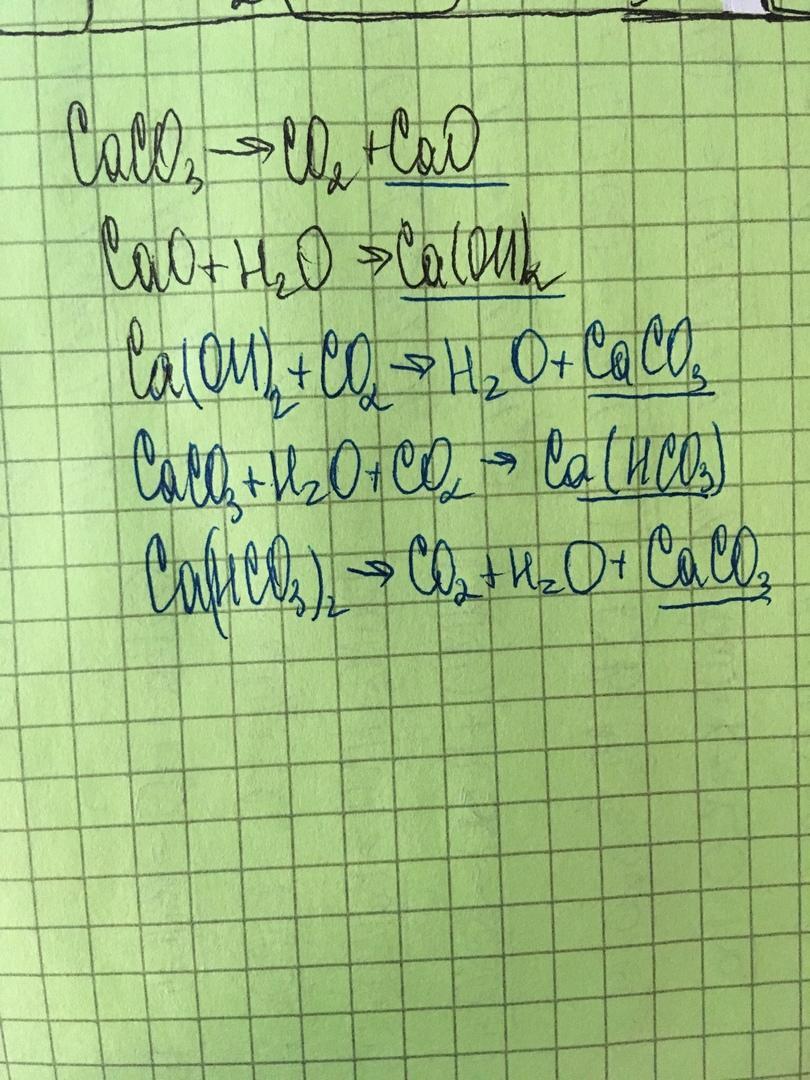 CaCO₃ → CO₂ + CaO
CaO + H₂O → Ca(OH)₂
Ca(OH)₂ + CO₂ → H₂O + CaCO₃
CaCO₃ + H₂O + CO₂ → Ca(HCO₃)
Ca(HCO₃)₂ → CO₂ + H₂O + CaCO₃